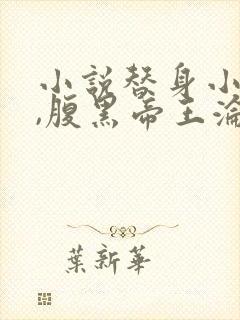 小說替身小
,腹黑帝王淪
葉新華